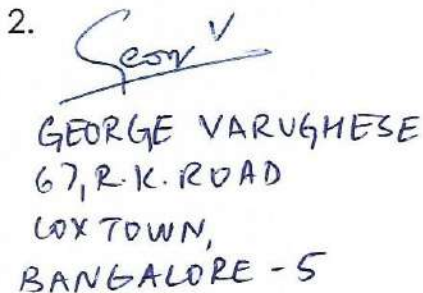 2.
GEORGE VARUGHESE
67, R.K. ROAD
COX TOWN,
BANGALORE - 5